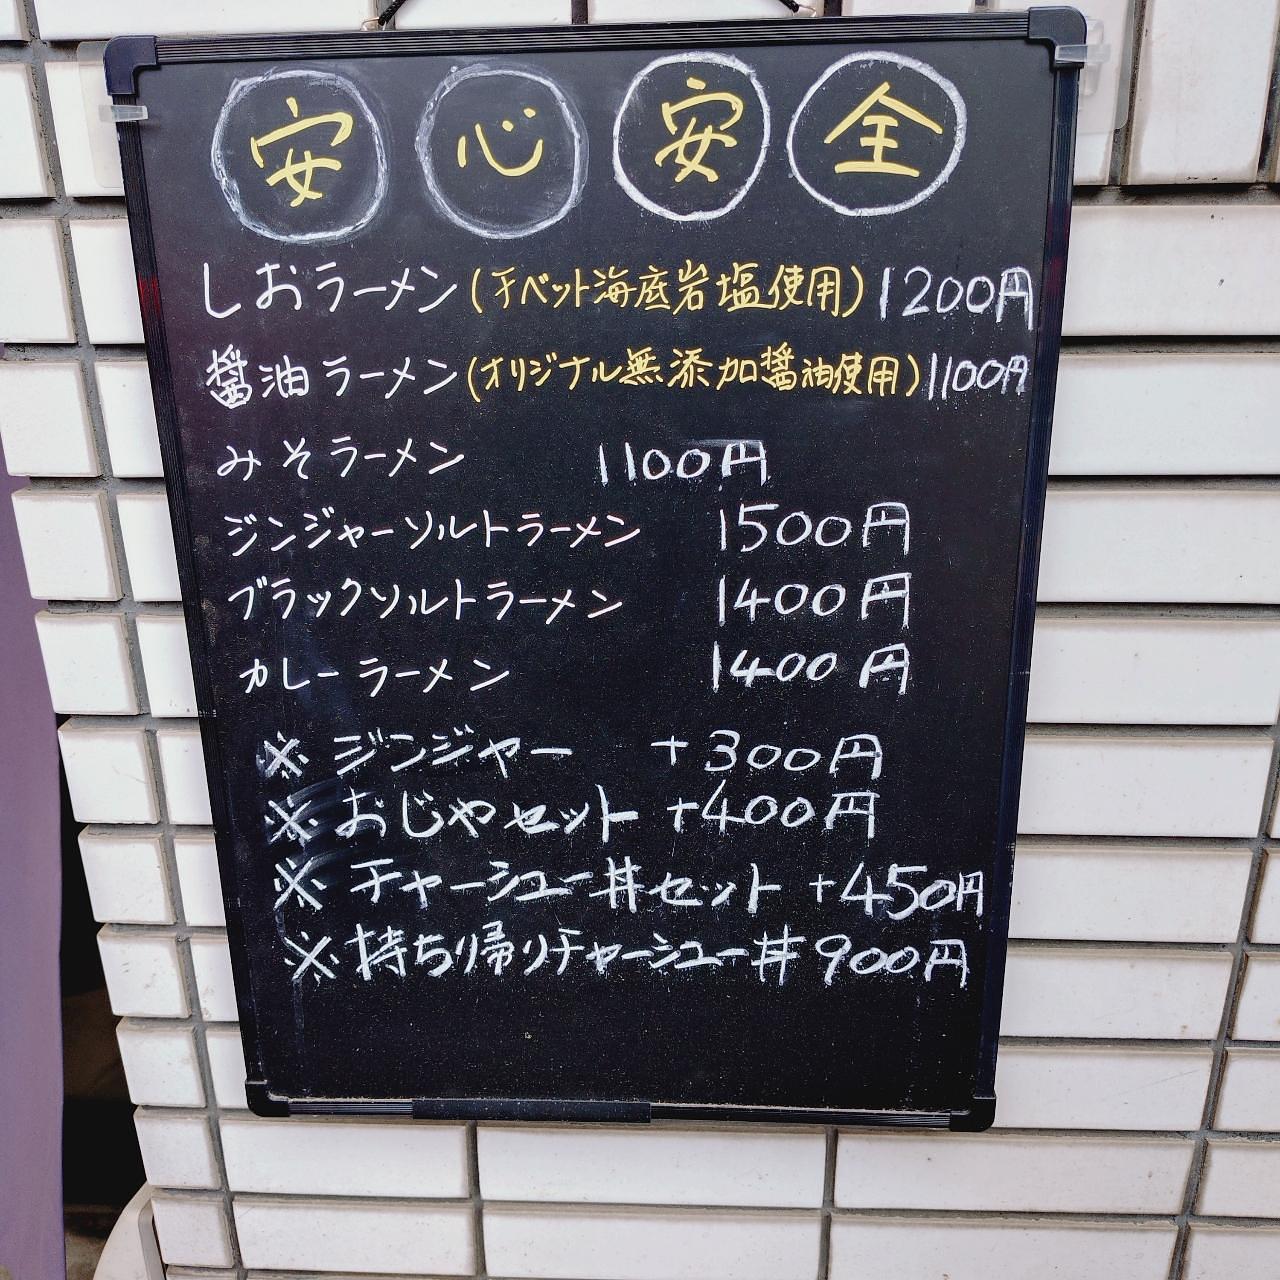 安心安全
しおラーメン(チベット海底岩塩使用)1200円
醤油ラーメン(オリジナル無添加醤油使用)1100円
みそラーメン 1100円
ジンジャーソルトラーメン 1500円
ブラックソルトラーメン 1400円
カレーラーメン 1400円
※ ジンジャー +300円
※ おじやセット +400円
※ チャーシュー丼セット +450円
※ 持ち帰りチャーシュー丼 900円